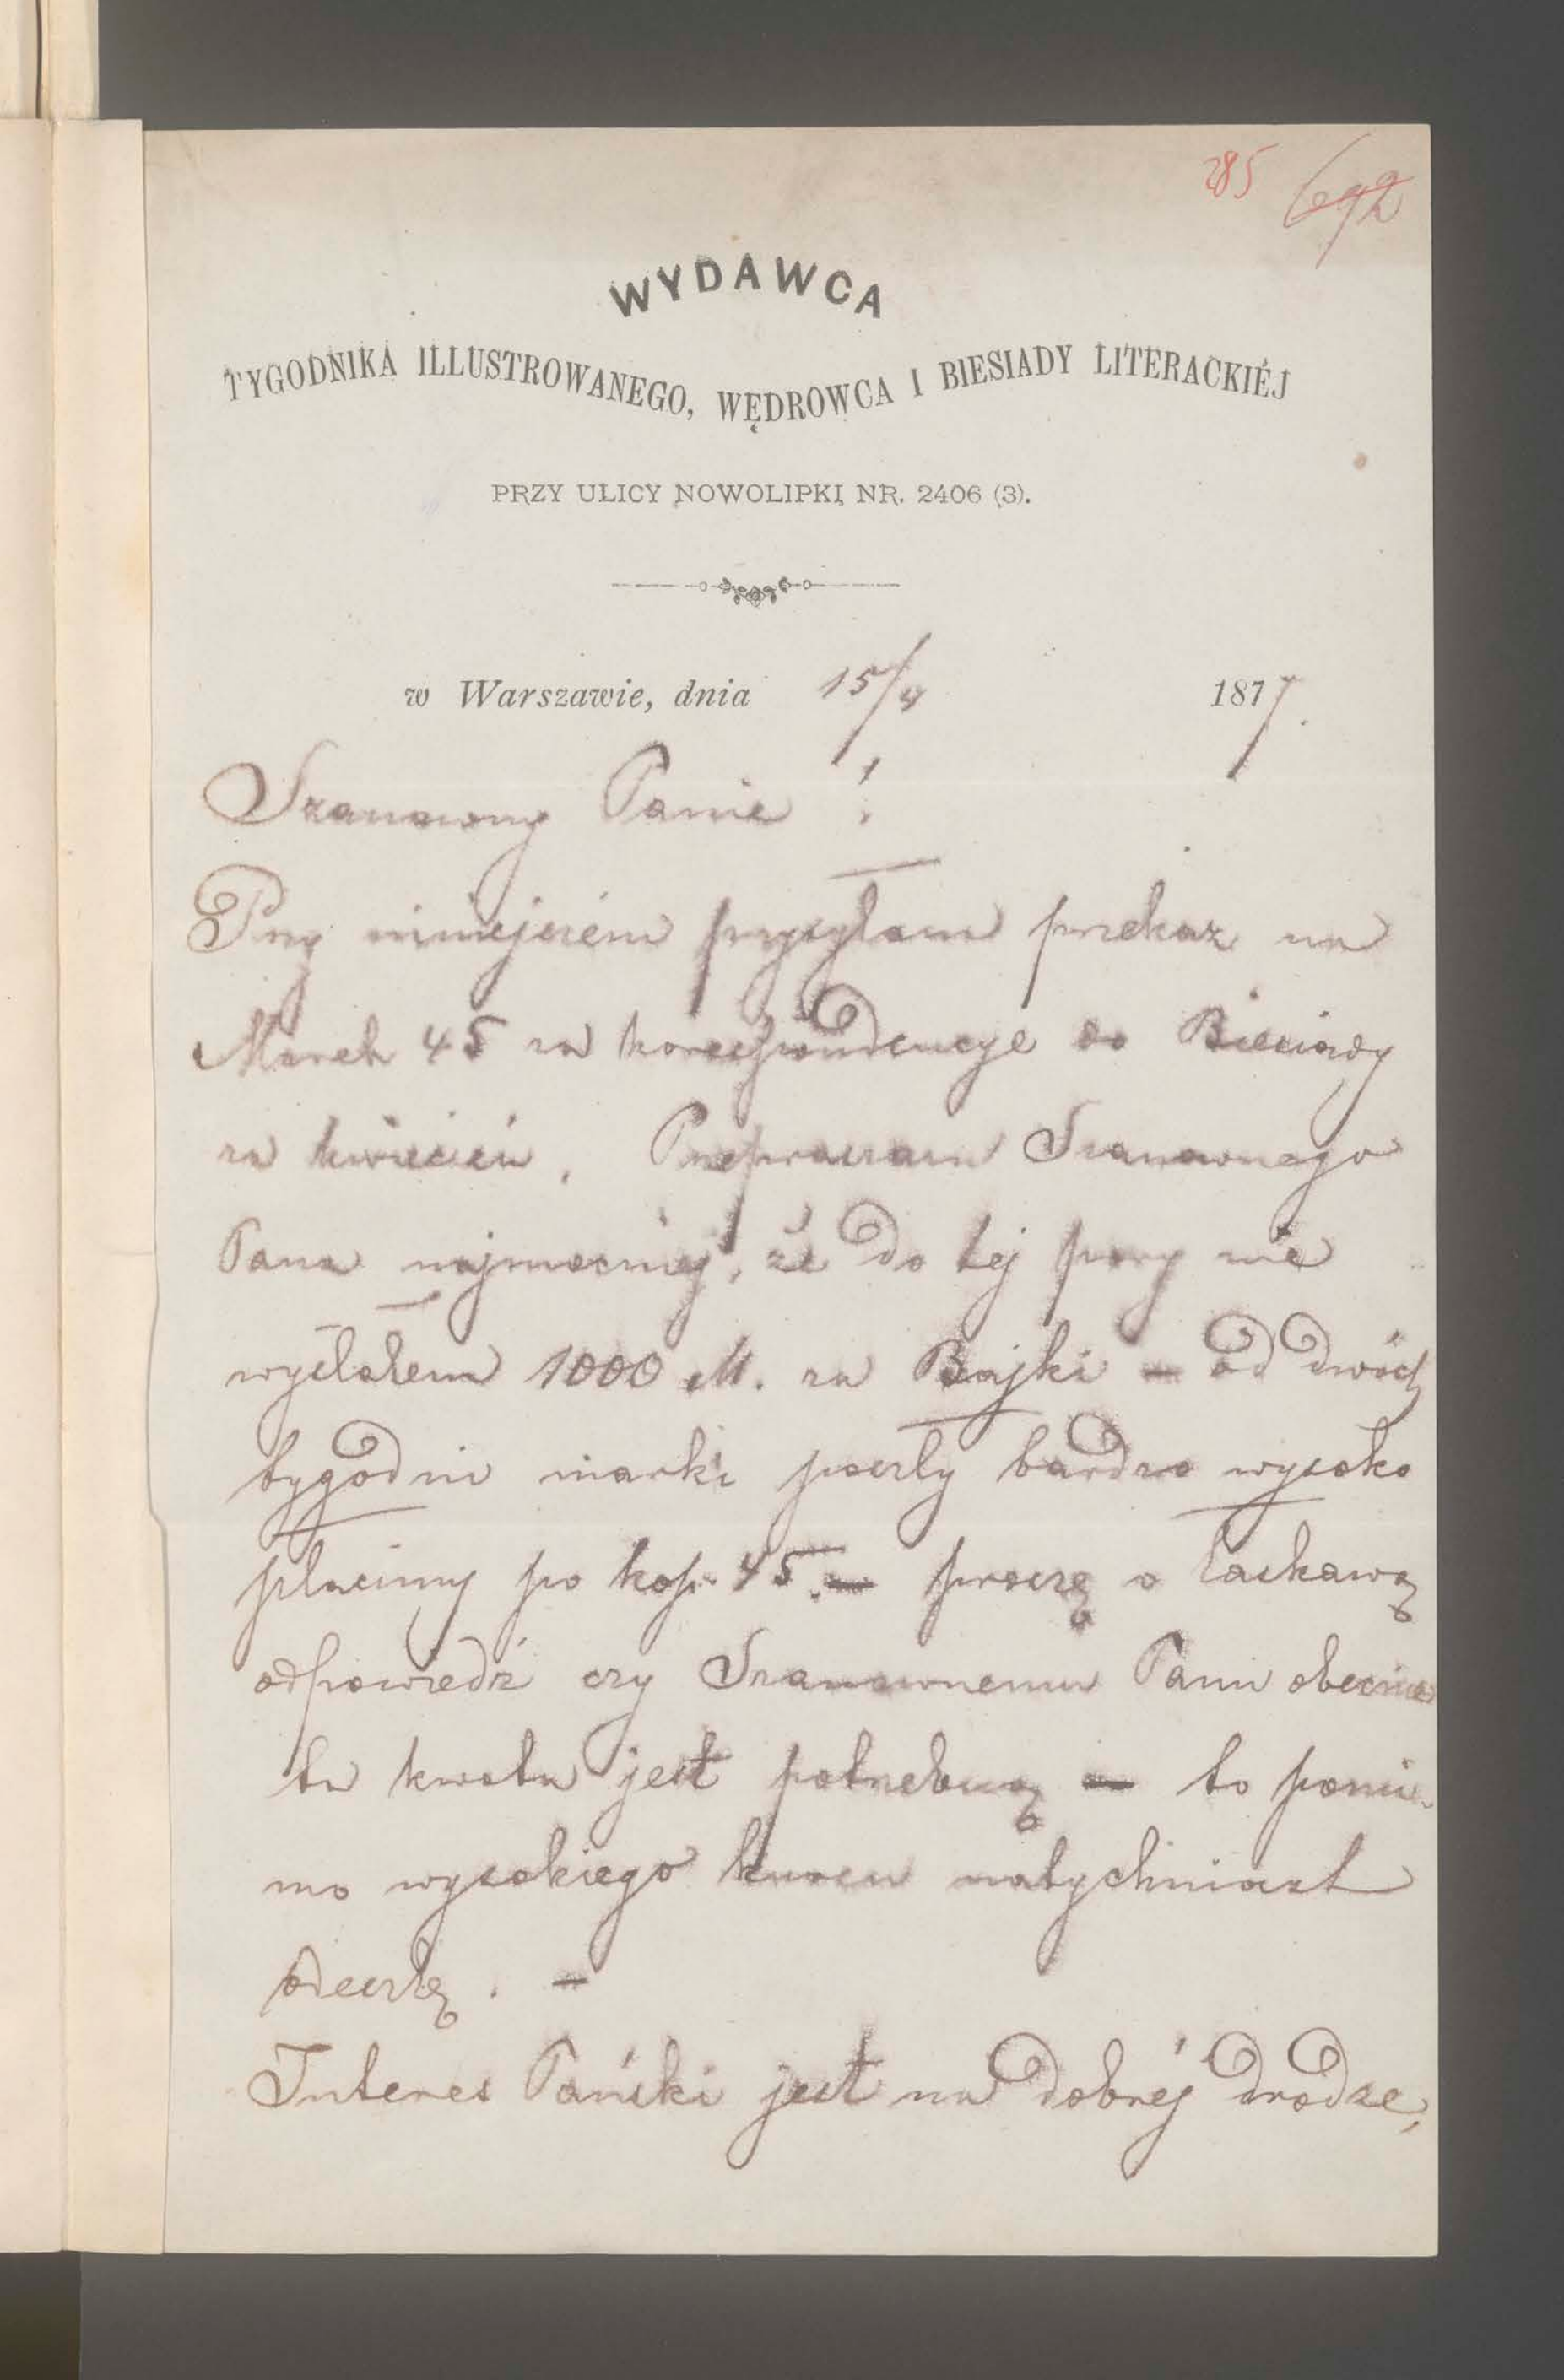 285 692
WYDAWCA
TYGODNIKA ILLUSTROWANEGO, WĘDROWCA I BIESIADY LITERACKIÉJ
PRZY ULICY NOWOLIPKI NR. 2406 (3).
w Warszawie, dnia 15/4 1877.
Szanowny Panie!
Przy niniejszém przysyłam przekaz na
Marek 45 za korespondencye do Biesiady
za kwiecień. Przepraszam Szanownego
Pana najmocniej, że do tej pory nie
wysłałem 1000 M. za Bajki – od dwóch
tygodni marki poszły bardzo wysoko
płacimy po kop. 45. – proszę o łaskawą
odpowiedź czy Szanownemu Panu obecnie
ta kwota jest potrzebną – to pomi-
mo wysokiego kursu natychmiast
odeszlę. –
Interes Pański jest na dobréj drodze,